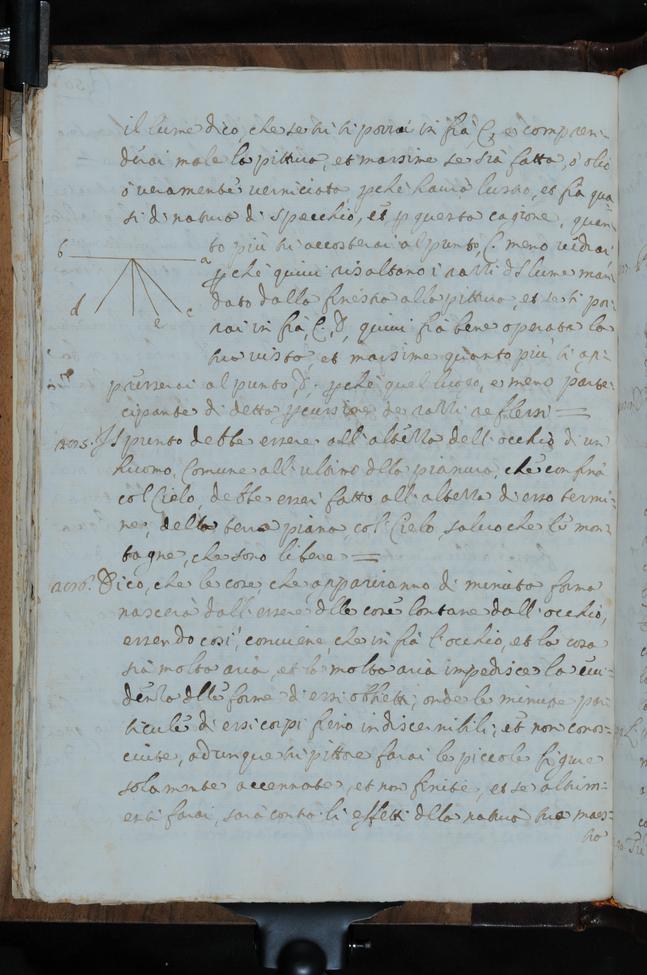 il lume dico, che se tu ti porrai in frà C, e compren=
derai male la pittura, et massime se sià fatta, ò olio
ò veramente verniciata pche havrà lustro, et fia qua
si di natura di specchio, et p questa cagione, quan
to più ti accosterai al punto C. meno vedrai
b a
pche quivi risaltano i razzi dl lume man
dato dalla finestra alla pittura, et se ti por
d e c
rai in frà, C, D, quivi fia bene operata la
tua vista, et massime quanto più ti ap=
presserai al punto D. pche quel luogo, e meno parte
cipante di detta pcussione de razzi reflessi =
Il punto debbe essere all'altezza dell'occhio di un
huomo, Comune all'ultimo dlla pianura, che confina
col Cielo, debbe essai fatto all'altezza di esso termi=
ne, della terra piana col Cielo, salvo che le mon=
tagne, che sono libere =
Dico, che le cose, che appariranno di minuta forma
nascerà dall'essere dlle cose lontane dall'occhio,
essendo così, conviene, che in frà l'occhio, et la cosa
sià molta aria, et la molta aria impedisce la evi=
denza dlle forme di essi obbietti; onde le minute par
ticule di essi corpi fieno indiscernibili; et non conos=
ciute, adunque tu pittore farai le piccole figure
solamente accennate, et non finite, et se altrim=
enti farai, sarà contro li effetti dlla natura tua maes=
tra